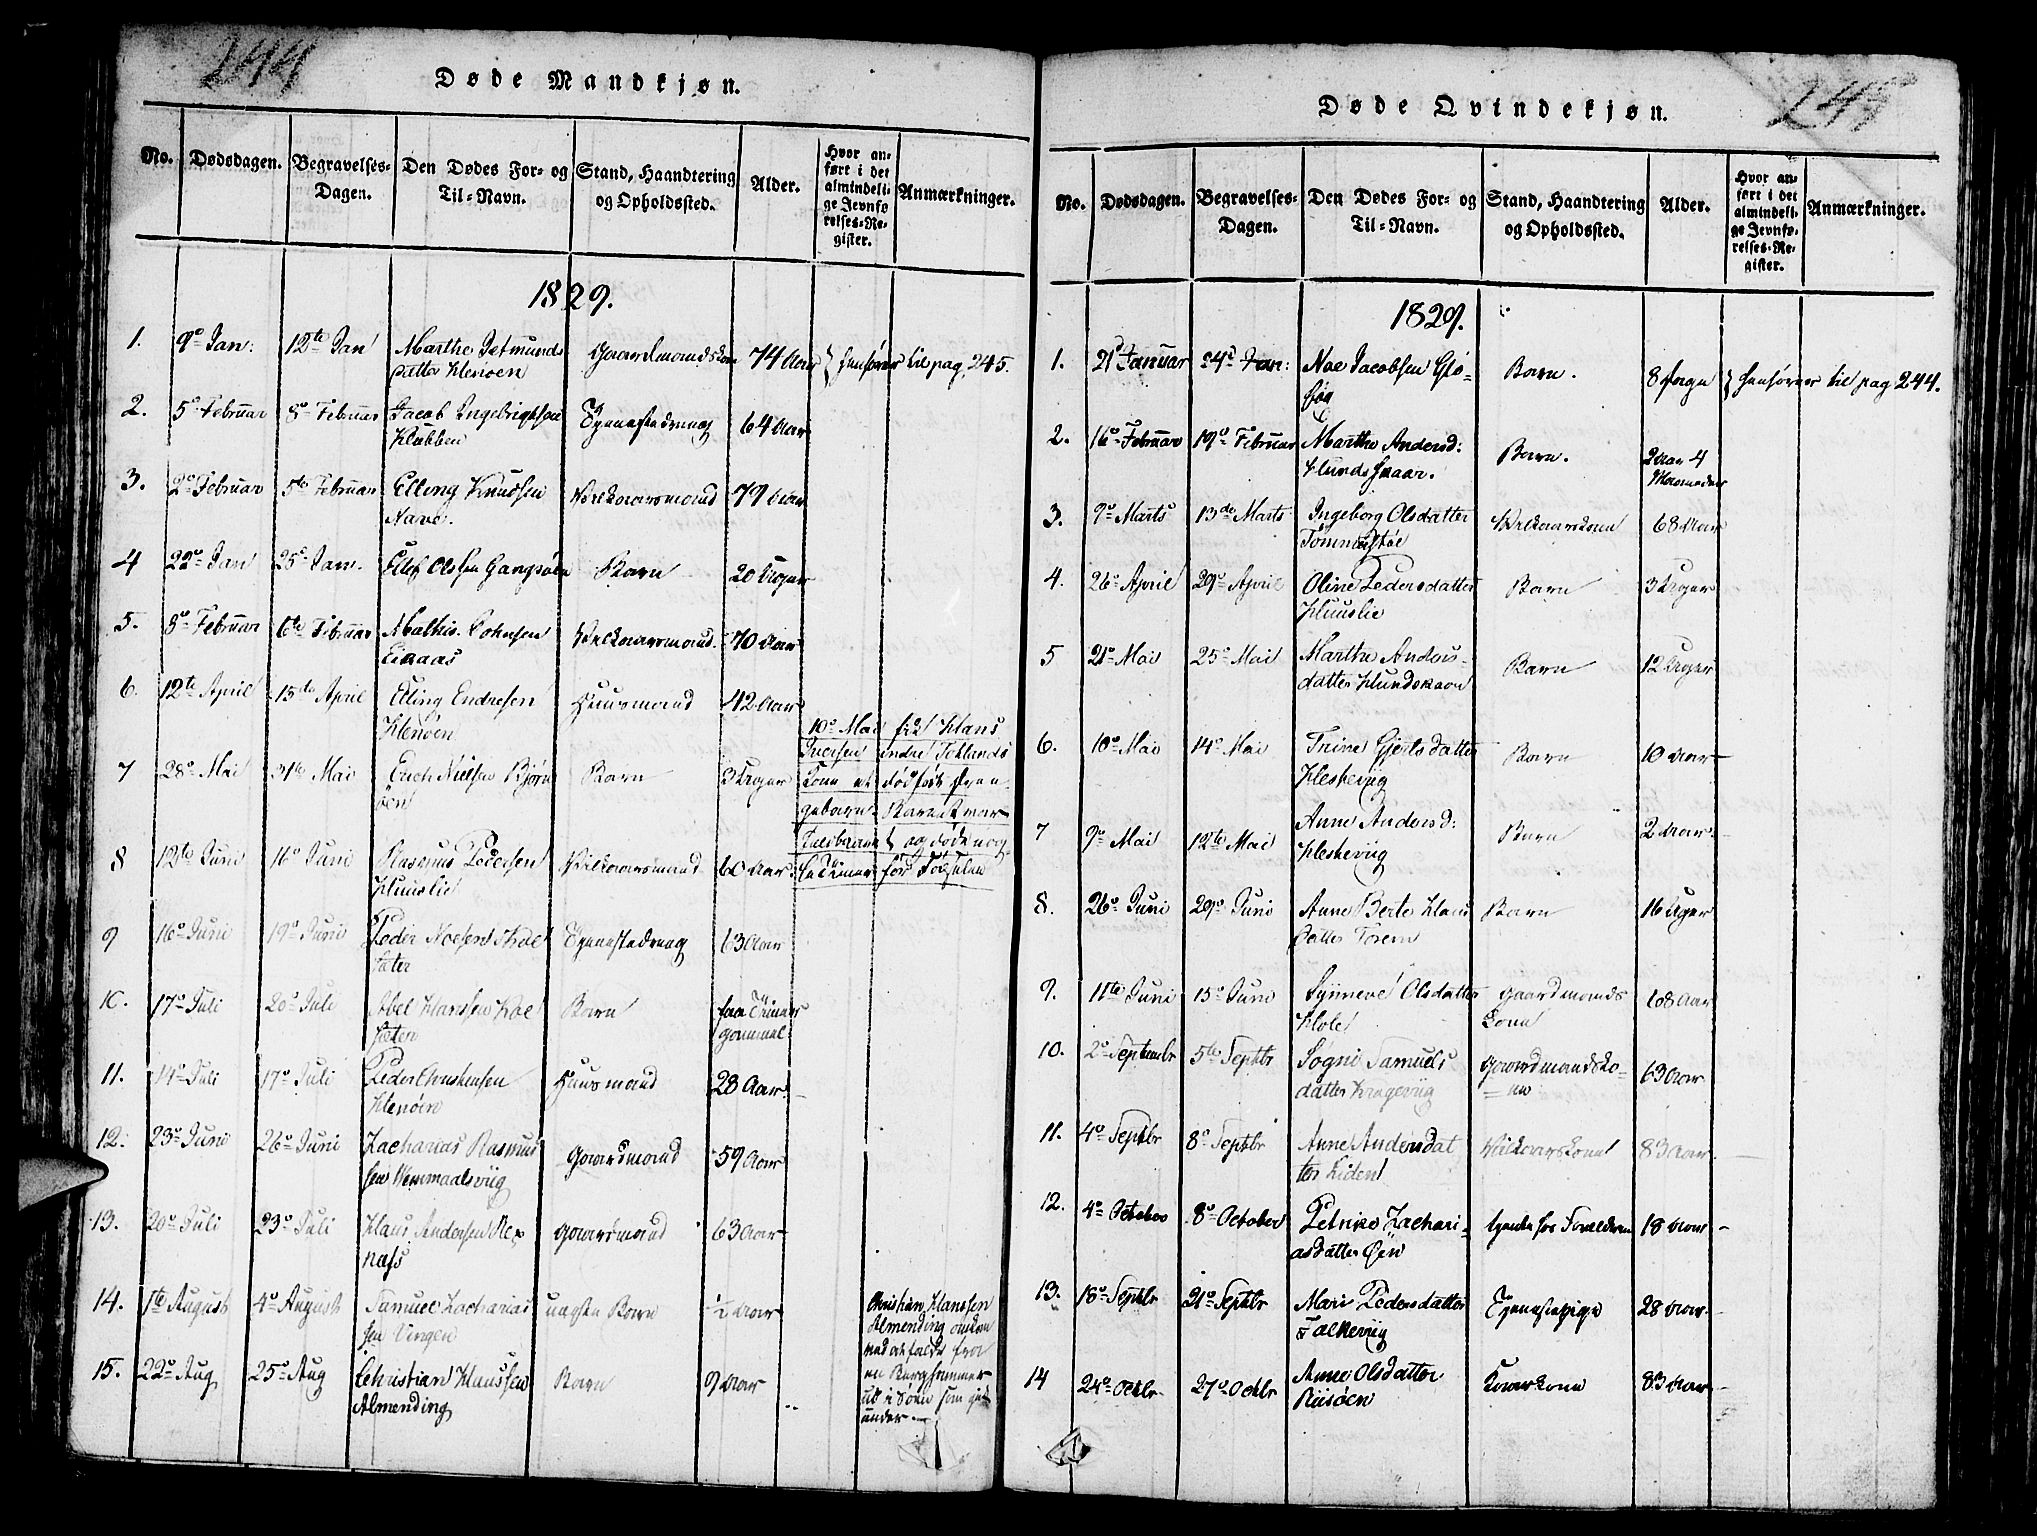 244
Døde Mandkjøn.
No. Dødsdagen. Begravelses-Dagen. Den Dødes For- og Til-Navn. Stand, Haandtering og Opholdssted. Alder. Hvor anført i det almindelige Jevnførelses-Register. Anmærkninger.
1829.
1. 9de Jan: 12te Jan Marthe Detmunds
datter Henøen Gaardmandskone 74 Aar henføres til pag. 245.
2. 5e Februar 8e Februar Jacob Ingebrigtsen
Klubben 64 Aar
3. 2e Februar 5te Februar Elling Knudsen
Nave. Vilkaarsmand 79 Aar
4 22e Jan 25e Jan. Ellef Olssen Gangsøen Barn 20 Uger
5. 8e Februar 6te Februar Mathis Johnsen
Eikaas Vilkaarsmand. 70 Aar
6. 12te April 15de April Elling Endresen
Henøen Huusmand 42 Aar
7 28e Mai 31te Mai Erich Nielsen Bjørn
øen Barn 3 Uger
10e Mai fik Hans
Iversen indre Tehlands
Kone et dødfødt Drengebarn. Barnet var
og døde nog
før Fødselen
8 12te Juni 16e Juni Rasmus Pedersen
Huuslie Vilkaarsmand 60 Aar
9 16e Juni 19e Juni Peder Noesen Skae
sæter 63 Aar
10. 17e Juli 20e Juli Abel Hanssen Kae
sæter Barn faa Timer
gammel
11. 14e Juli 17e Juli Peder Christensen
Henøen Huusmand 28 Aar
12. 23e Juni 26e Juni Zacharias Rasmus
sen Hemmaalsviig Gaardmand 59 Aar
13. 20e Juli 23e Juli Hans Andersen Rex
næss Gaardmand 63 Aar
14. 1te August 4e August Samuel Zacharias
sen Vingen uægte Barn ½ Aar
15. 22e Aug 25e Aug Christian Hanssen
Almending Barn 9 Aar
Christian Hanssen
Almending omkom
ved at falde fra
en Berghammer
ud i Søen som gik
under
245
Døde Qvindekjøn.
No. Dødsdagen. Begravelses-Dagen. Den Dødes For- og Til-Navn. Stand, Haandtering og Opholdssted. Alder. Hvor anført i det almindelige Jevnførelses-Register. Anmærkninger.
1829.
1. 21e Januar 24e Jan: Noe Jacobsen Glø-
søg Barn. 8 Dage henføres til pag 244.
2. 16e Februar 19e Februar Marthe Andersd:
Hundskaar. Barn. 2 Aar 4
Maaneder
3. 9e Marts 13de Marts Ingeborg Olsdatter
Tømmerstøe Vilkaarskone 68 Aar
4. 26e April 29e April Oline Pedersdatter
Huuslie Barn 3 Uger
5 21e Mai 25e Mai Marthe Anders-
datter Hundskaar Barn 12 Uger
6. 10e Mai 14e Mai Trine Gjertsdatter
Hesteviig Barn 10 Aar
7 9e Mai 12te Mai Anne Andersd:
Hesteviig Barn 2 Aar.
8. 26e Juni 29e Juni Anne Berte Hans
datter Torem Barn 16 Uger
9. 11te Juni 15e Juni Synneve Olsdatter
Hole Gaardmands
Kone 68 Aar
10. 2e Septembr 5te Septbr Søgni Samuels
datter Krageviig Gaardmandsko-
ne 63 Aar
11. 4e Septbr 8e Septbr Anne Andersdat
ter Liden Vilkaarskone 83 Aar
12. 4e October 8e October Petrike Zachari-
asdatter Øen hjemme hos Forældrene 18 Aar
13. 18e Septbr 21e Septbr Mari Pedersdatter
Falkeviig Tjenestepige 28 Aar
14 24e Octbr 27e Octbr Anne Olsdatter
Riisøen Kaarkone 83 Aar